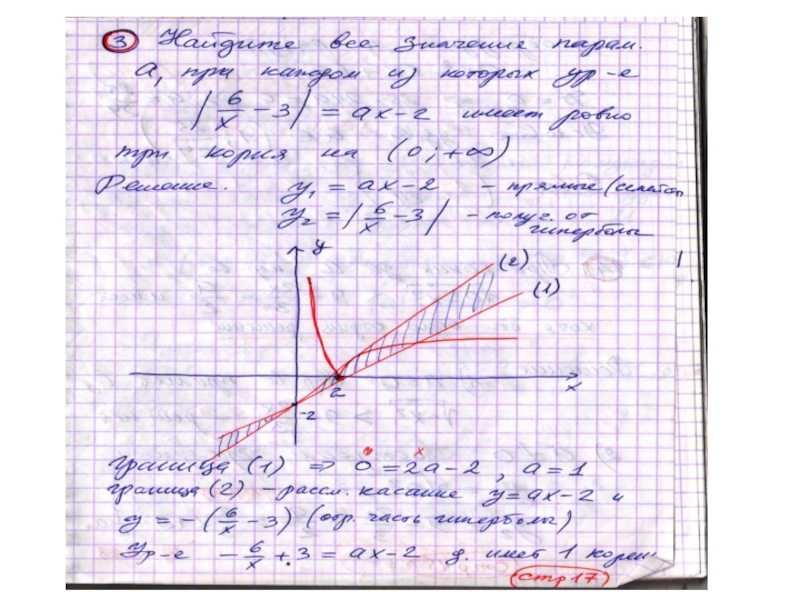 ③ Найдите все значение парам.
а, при каждом из которых ур-е
|6/x - 3| = ax - 2 имеет ровно
три корня на (0; +∞)
Решение. y₁ = ax - 2 - прямые (семейств
y₂ = |6/x - 3| - получ. от
гиперболы
y
(2)
(1)
2
x
-2
y x
Граница (1) ⇒ 0 = 2a - 2, a = 1
Граница (2) - рассм. касание y = ax - 2 и
y = -(6/x - 3) (отр. часть гиперболы)
Ур-е -6/x + 3 = ax - 2 д. имет 1 корень
(стр 17)